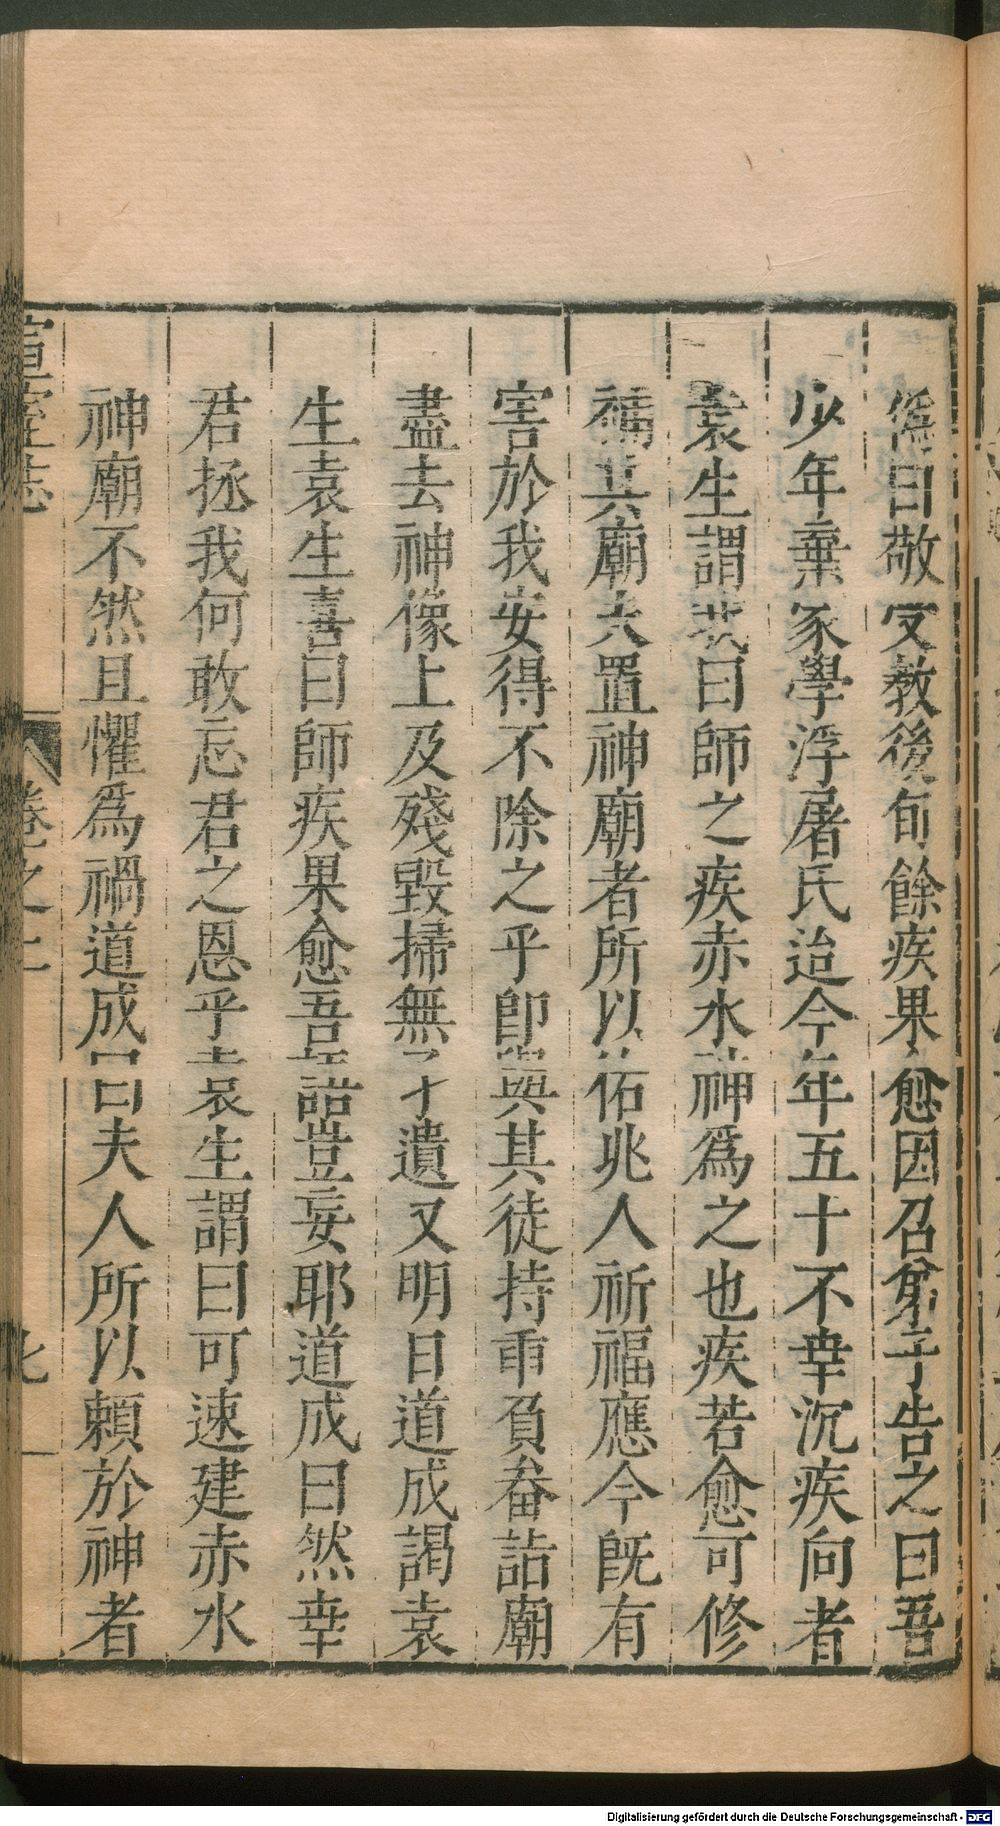 僞曰敬受教後旬餘疾果愈因召弟子告之曰吾
少年棄家學浮屠氏迨今年五十不幸沉疾向者
袁生謂我曰師之疾赤水神爲之也疾若愈可修
補其廟夫置神廟者所以佑兆人祈福應今既有
害於我安得不除之乎卽與其徒持歃負畚詣廟
盡去神像上及殘毀掃無孑遺又明日道成謁袁
生袁生喜曰師疾果愈吾語豈妄耶道成曰然幸
君拯我何敢忘君之恩乎袁生謂曰可速建赤水
神廟不然且懼爲禍道成曰夫人所以賴於神者
宣室志 卷之
Digitalisierung gefördert durch die Deutsche Forschungsgemeinschaft - DFG